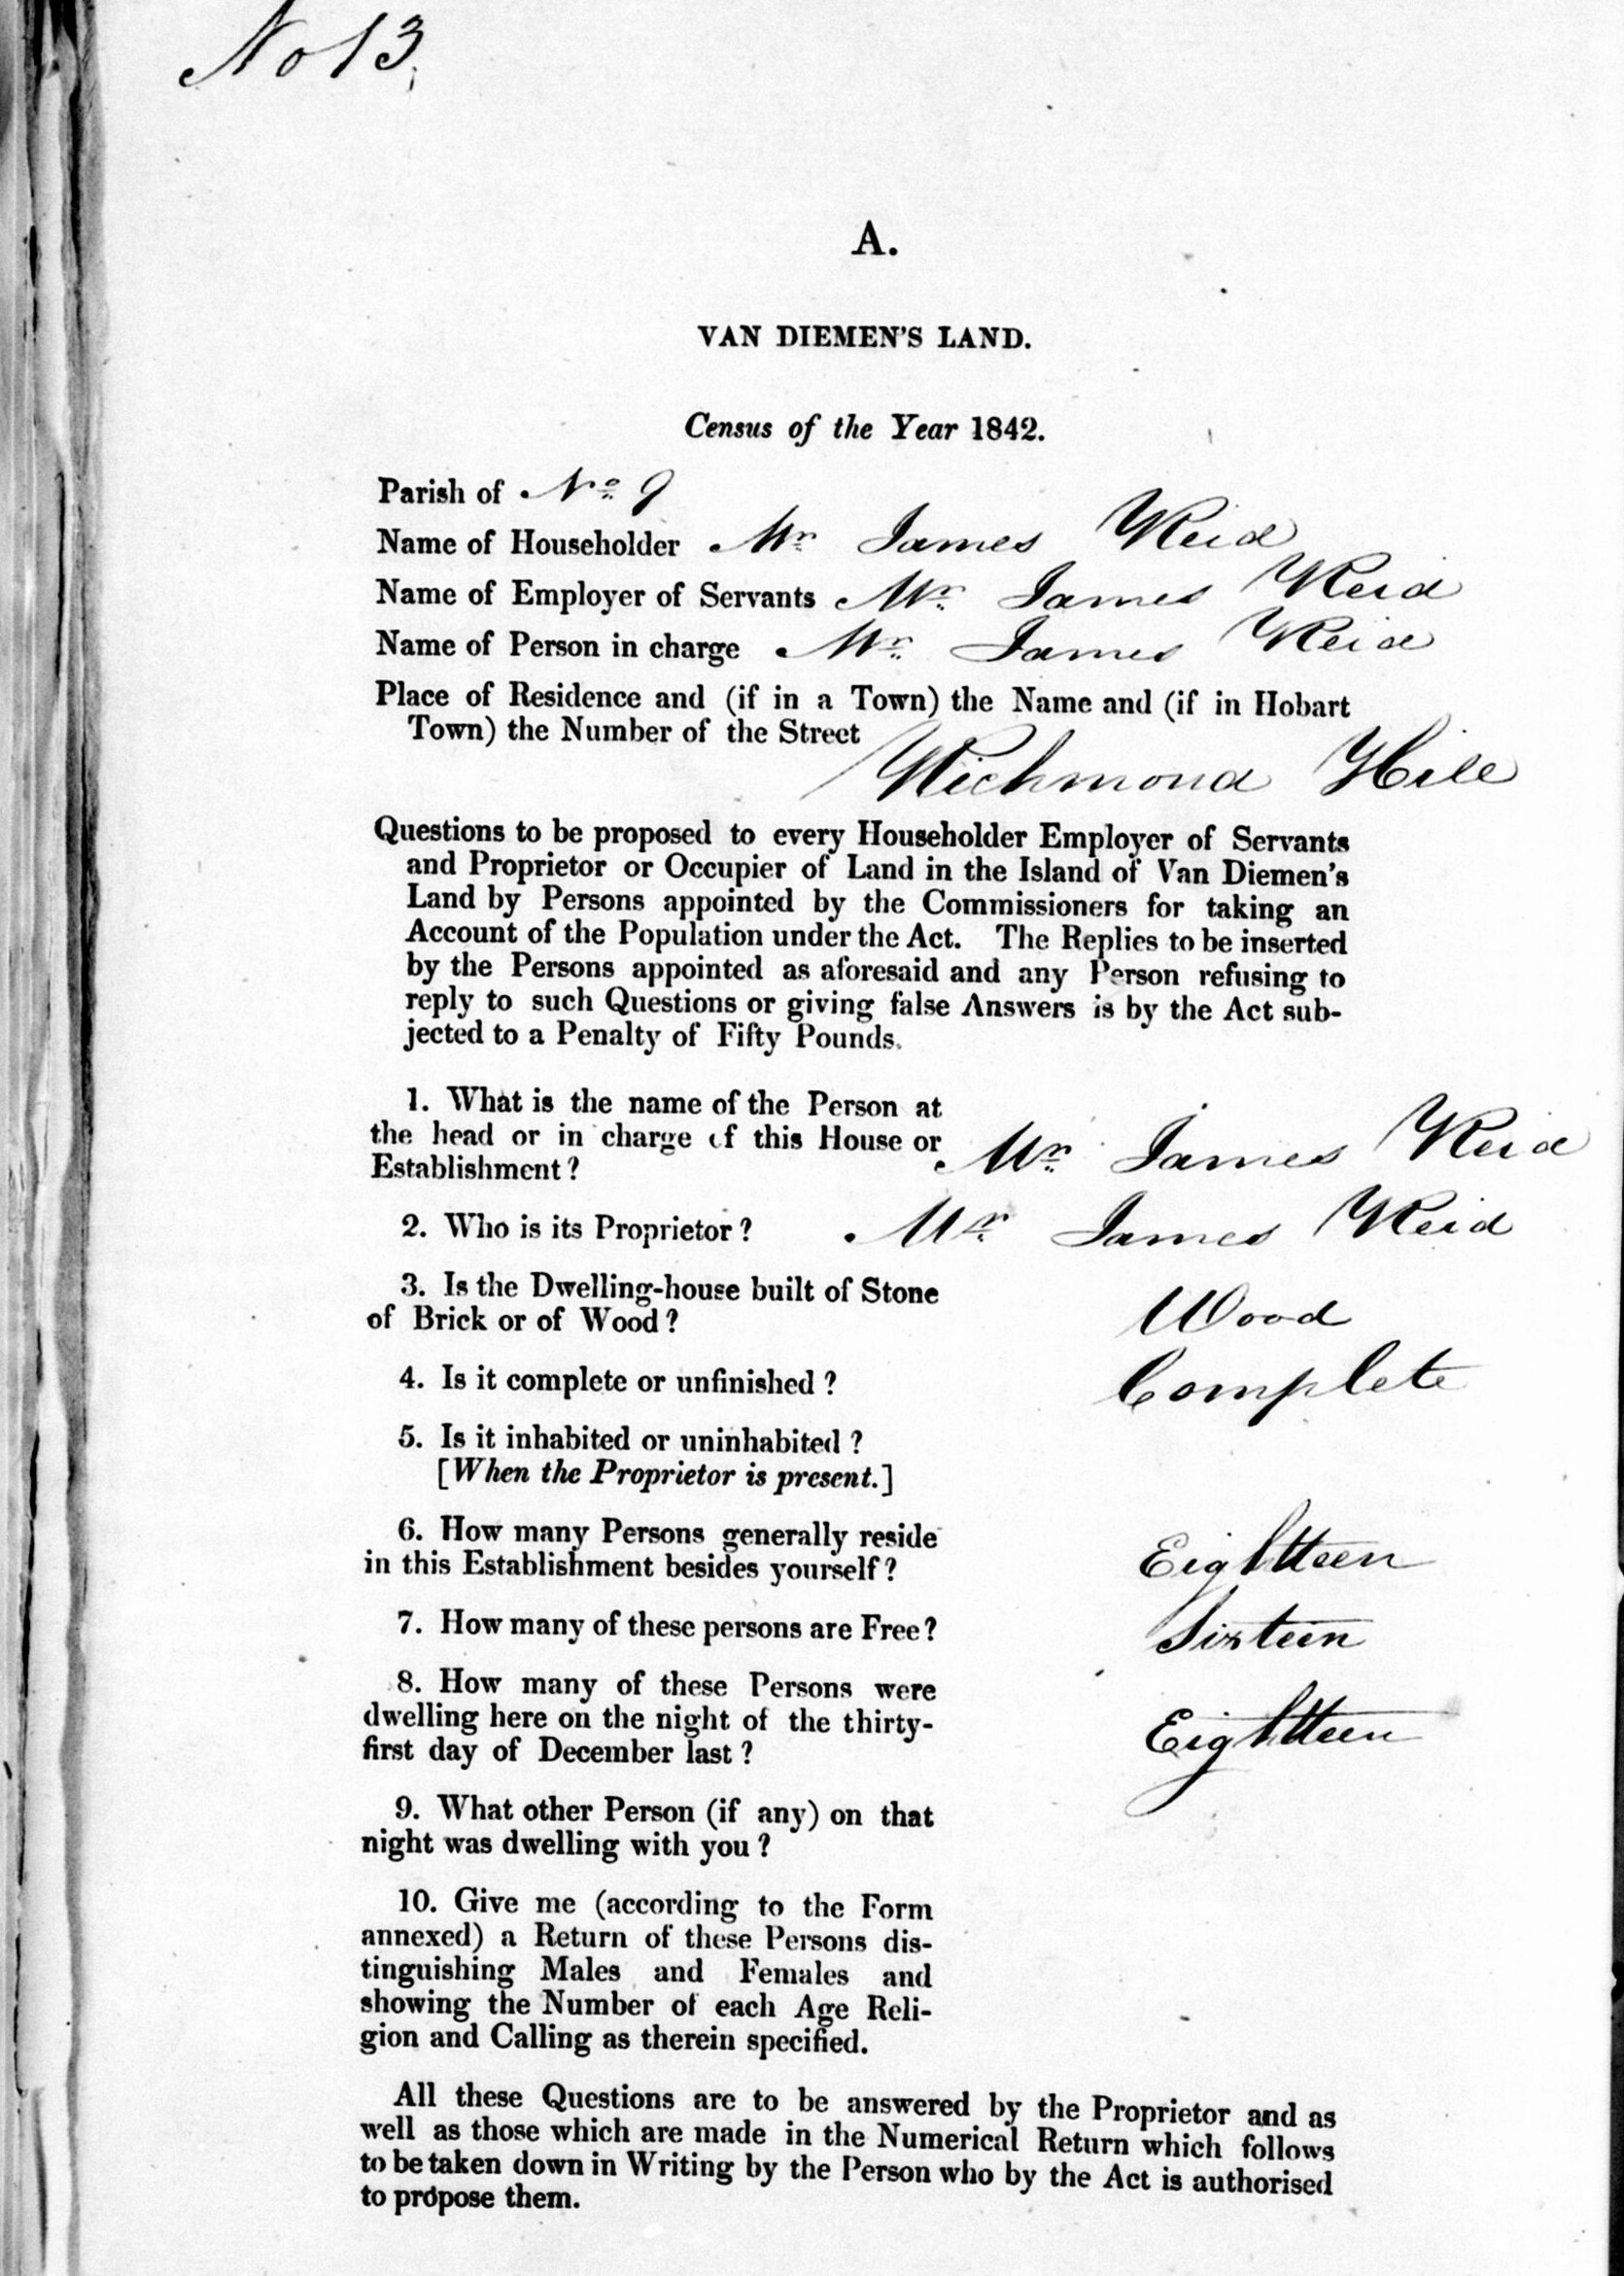 No 13.
A.
VAN DIEMEN'S LAND.
Census of the Year 1842.
Parish of No 9
Name of Householder Mr James Reid
Name of Employer of Servants Mr James Reid
Name of Person in charge Mr James Reid
Place of Residence and (if in a Town) the Name and (if in Hobart
Town) the Number of the Street
Richmond Hill
Questions to be proposed to every Householder Employer of Servants
and Proprietor or Occupier of Land in the Island of Van Diemen's
Land by Persons appointed by the Commissioners for taking an
Account of the Population under the Act. The Replies to be inserted
by the Persons appointed as aforesaid and any Person refusing to
reply to such Questions or giving false Answers is by the Act sub-
jected to a Penalty of Fifty Pounds.
1. What is the name of the Person at
the head or in charge of this House or
Establishment? Mr James Reid
2. Who is its Proprietor? Mr James Reid
3. Is the Dwelling-house built of Stone
of Brick or of Wood? Wood
4. Is it complete or unfinished? Complete
5. Is it inhabited or uninhabited?
[When the Proprietor is present.]
6. How many Persons generally reside
in this Establishment besides yourself? Eightteen
7. How many of these persons are Free? Sixteen
8. How many of these Persons were
dwelling here on the night of the thirty- Eightteen
first day of December last?
9. What other Person (if any) on that
night was dwelling with you?
10. Give me (according to the Form
annexed) a Return of these Persons dis-
tinguishing Males and Females and
showing the Number of each Age Reli-
gion and Calling as therein specified.
All these Questions are to be answered by the Proprietor and as
well as those which are made in the Numerical Return which follows
to be taken down in Writing by the Person who by the Act is authorised
to propose them.